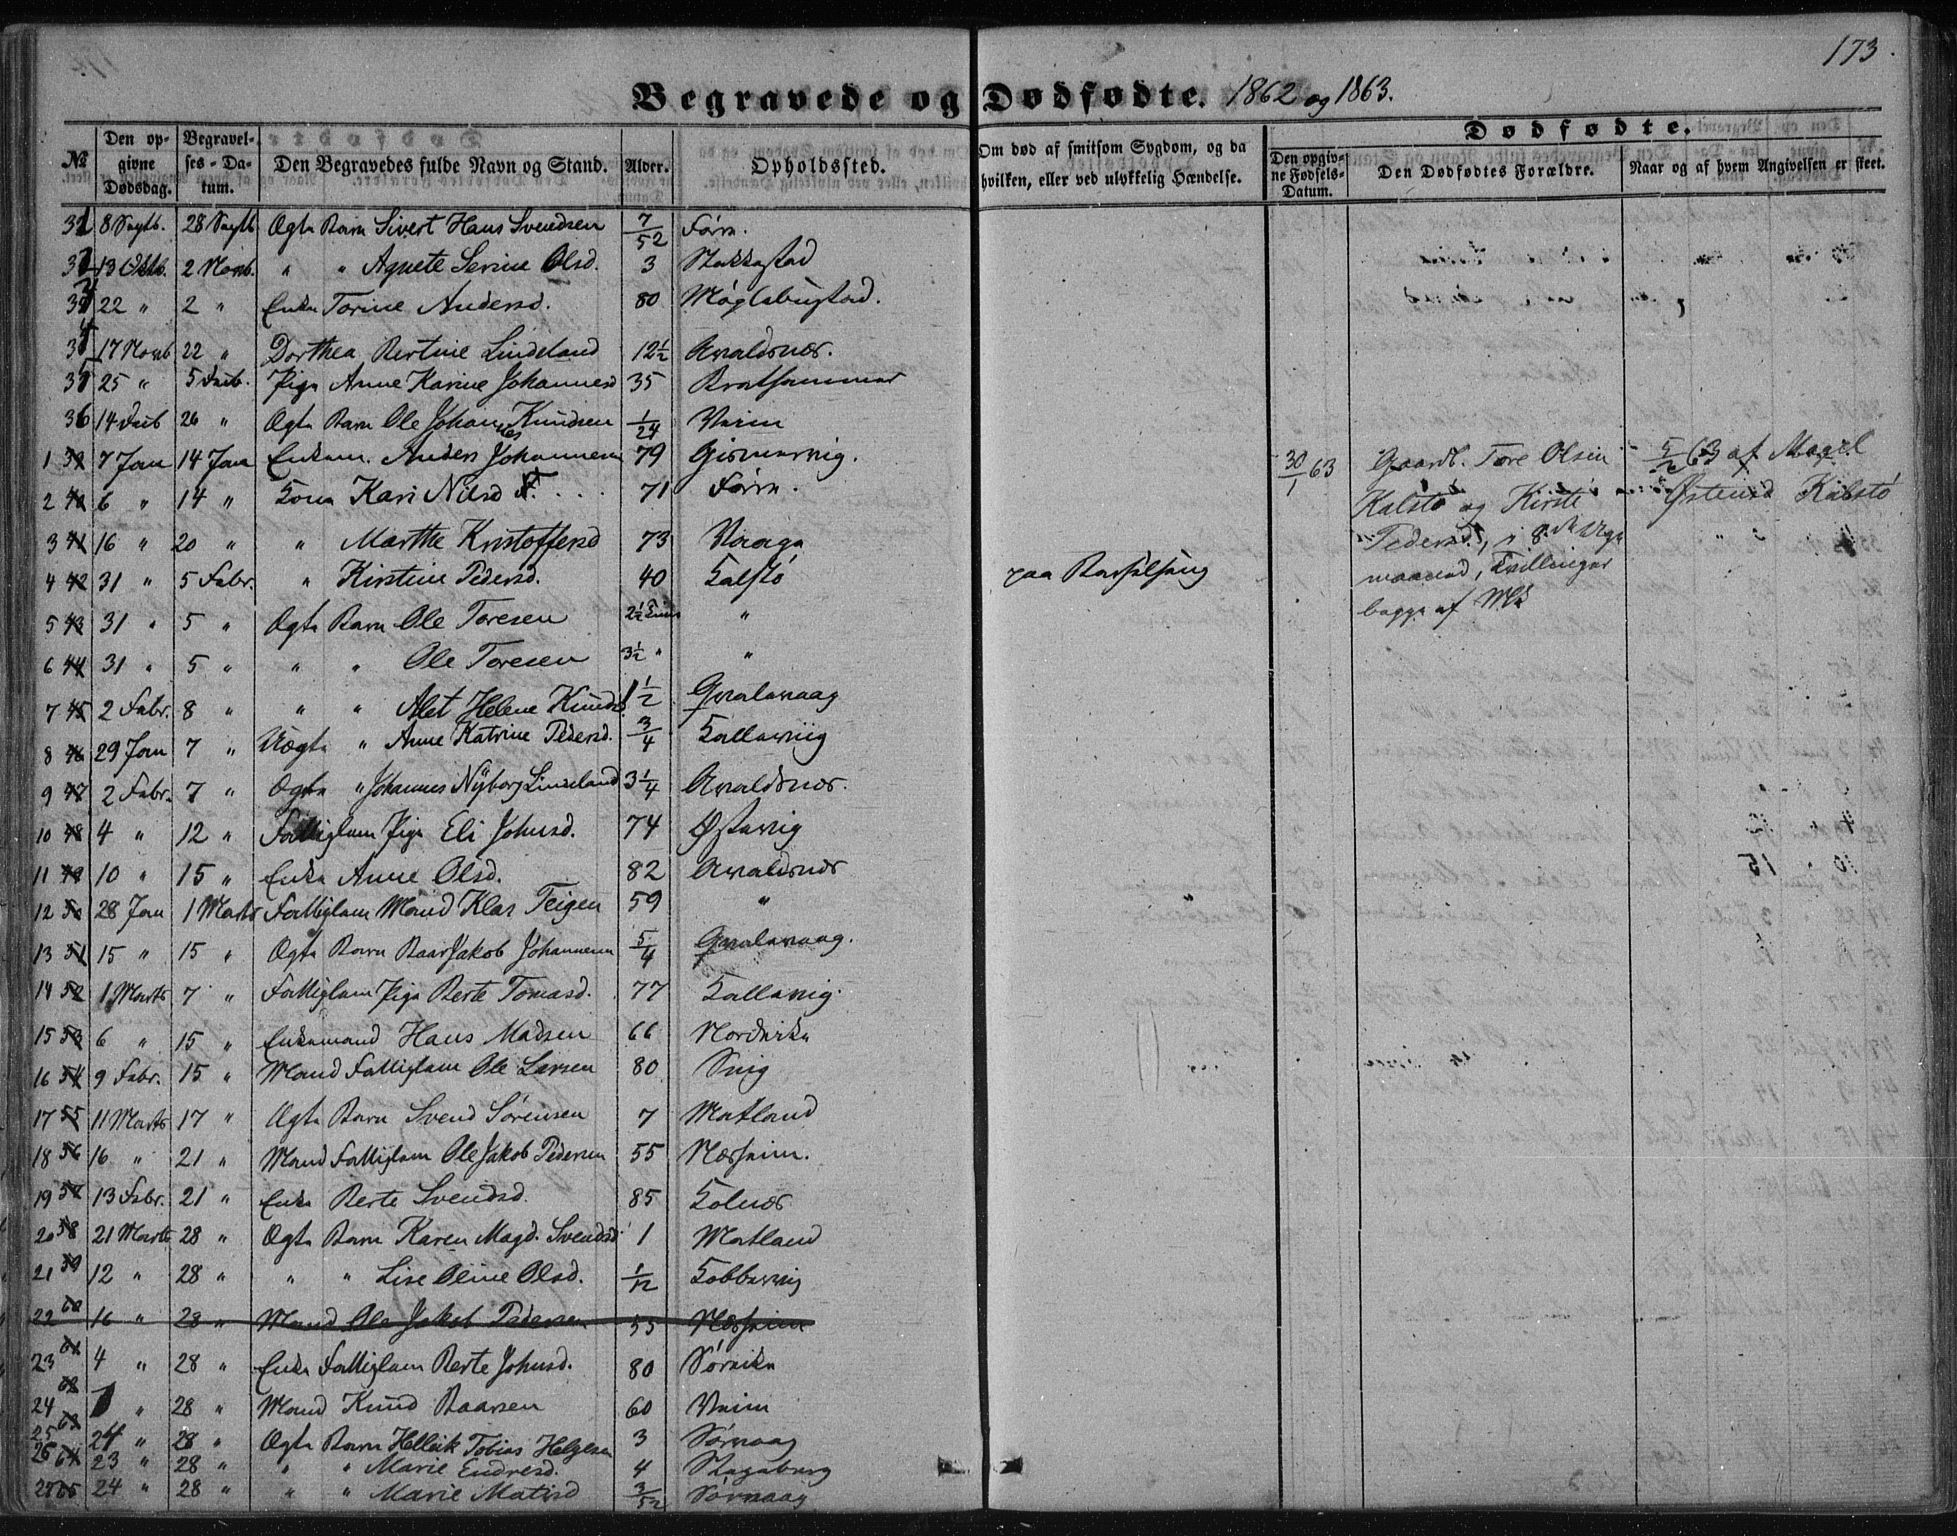 173.
Begravede og Dødfødte. 1862 og 1863.
Dødfødte.
No
Den opgivne Dødsdag.
Begravelses-Datum.
Den Begravedes fulde Navn og Stand.
Alder.
Opholdssted.
Om død af smitsom Sygdom, og da hvilken, eller ved ulykkelig Hændelse.
Den opgivne Fødsels-Datum.
Den Dødfødtes Forældre.
Naar og af hvem Angivelsen er skeet.
8 Septb. 28 Septb Ægte Barn Sivert Hans Svendsen 7/52 Førre.
13 Oktb. 2 Novb. " " Agnete Serine Olsd. 3 Stakkastad
22 " 2 " Enke Torine Andersd. 80 Møglebustad.
17 Novb 22 " Dorthea Bertine Lindeland 12½ Avaldsnæs.
25 " 5 Pige Anne Karine Johannesd 35 Bratthammer
36 14 26 " Ægte Barn Ole Johannes Knudsen 1/24 Veim
1 39 7 Jan 14 Jan Enkem. Anders Johannesen 79 Gismarvig.
2 40 6 " 14 " Kone Kari Nilsd F. . . . 71 Førre.
3 41 16 " 20 " " Marthe Kristoffersd 73 Vaaga
4 42 31 " 5 Febr. " Kirstine Pedersd. 40 Kalstø paa Barselseng
5 43 31 " 5 " Ægte Barn Ole Toresen 2½ "
6 44 31 " 5 " " " Ole Toresen 3½ " "
7 45 2 Febr. 8 " " " Alet Helene Knudsd. 1½ Gvalavaag
8 46 29 Jan 7 " Uægte " Anne Katrine Pedersd. 3/4 Kallevig
9 47 2 Febr. 7 " Ægte " Johannes Nyborg Lindeland 3¼ Avaldsnæs.
10 48 4 " 12 " Fattiglem Pige Eli Johnsd. 74 Østevig
11 49 10 " 15 " Enke Anne Olsd. 82 Avaldsnæs
12 50 28 Jan 1 Marts Fattiglem Mand Klas Teigen 59 "
13 51 15 " 15 " Ægte Barn Baar Jakob Johannesen 5/4 Gvalavaag.
14 52 1 Marts 7 " Fattiglem Pige Berte Tomasd. 77 Kallevig.
15 53 6 " 15 " Enkemand Hans Madsen 66 Nordvike
16 54 9 Febr. 15 " Mand Fattiglem Ole Larsen 80 Vig
17 55 11 Marts 17 " Ægte Barn Svend Sørensen 7 Matland
18 56 16 " 21 " Mand Fattiglem Ole Jakob Pedersen 55 Næsheim.
19 57 13 Febr. 21 " Enke Berte Svendsd. 85 Kolnæs
20 58 21 Marts 28 " Ægte Barn Karen Magd. Svendsd 1 Matland
21 59 12 " 28 " " " Lise Oline Olsd. 1/12 Kobbervig
22 60 16 " 28 " Mand Ole Jakob Pedersen 55 Næsheim
23 61 4 " 28 " Enke Fattiglem Berte Johnsd. 80 Sørvike
24 62 " 28 " Mand Knud Baarsen 60 Veim
25 63 24 " 28 " Ægte Barn Hellvik Tobias Helgesen 3 Sørvaag
26 64 23 " 28 " " " Marie Endresd. 4 Stegaberg
65 24 " 28 " " " Marie Matisd 3/52 Sørvaag
30/1 63
Gaardb. Tore Olsen
Kalstø og Kirsti
Pedersd., i 8de Svangr
maaned, Tvillinger
begge af Mk
5/2 63 af
Østensd Kalstø